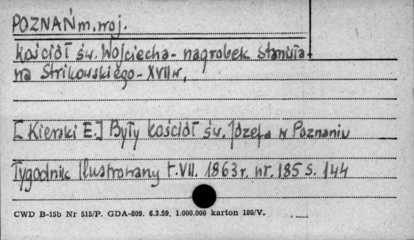 POZNAŃ m. woj.
Kościół św. Wojciecha - nagrobek Stanisła-
na Strikowskiego - XVII w,
[Kierski E.] Były kościół św. Józefa w Poznaniu
Tygodnik Ilustrowany t. VII. 1863 r. nr. 185 s. 144
CWD B-15b Nr 515/P. GDA-809. 6.3.59. 1.000.000 karton 180/V.